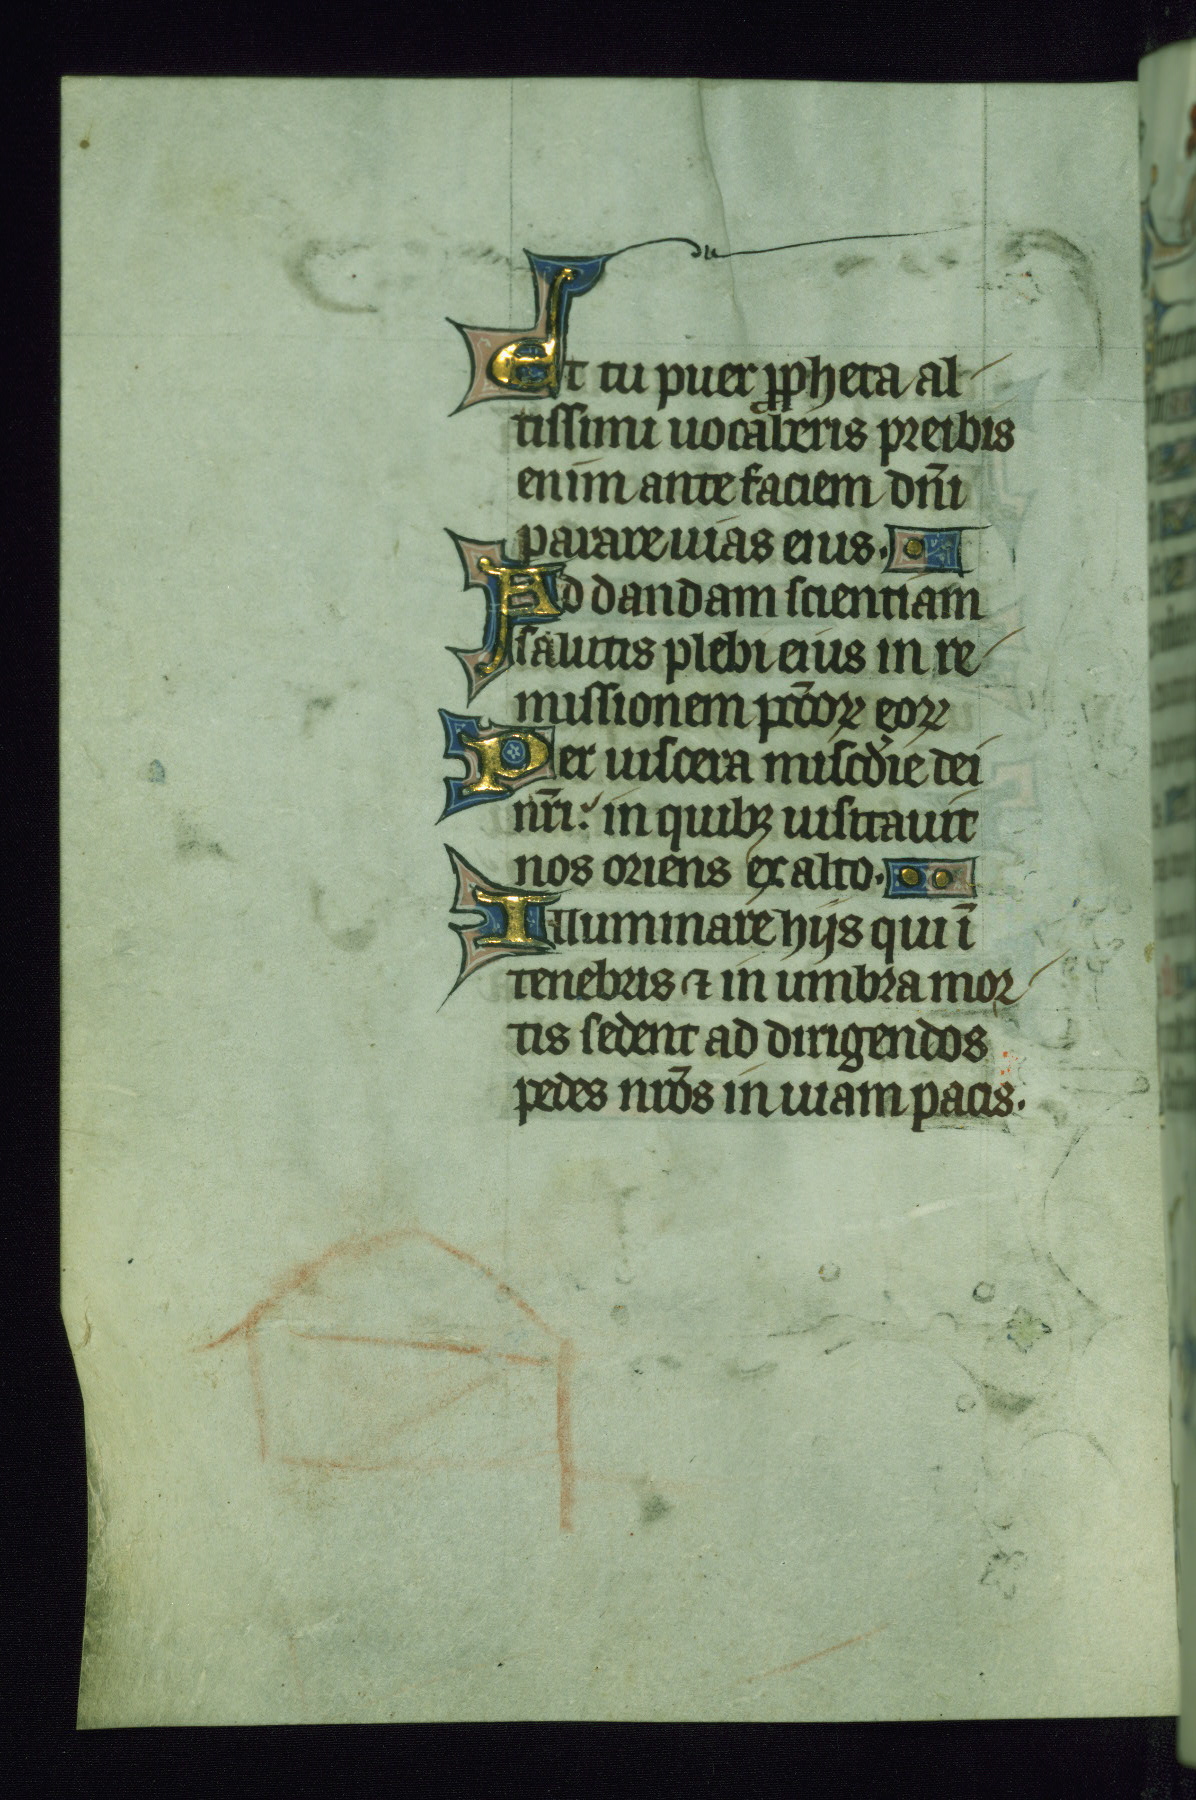 Et tu puer ꝓpheta al
tissimi uocaberis preibis
enim ante faciem dn̄i
parare uias eius.
Ad dandam scientiam
salutis plebi eius in re
missionem pctōꝝ eoꝝ
Per uiscera miscd̓ie dei
nr̄i: in quibꝫ uisitauit
nos oriens ex alto.
Illuminare hijs qui ī
tenebris ⁊ in umbra mor
tis sedent ad dirigendos
pedes nrōs in uiam pacis.